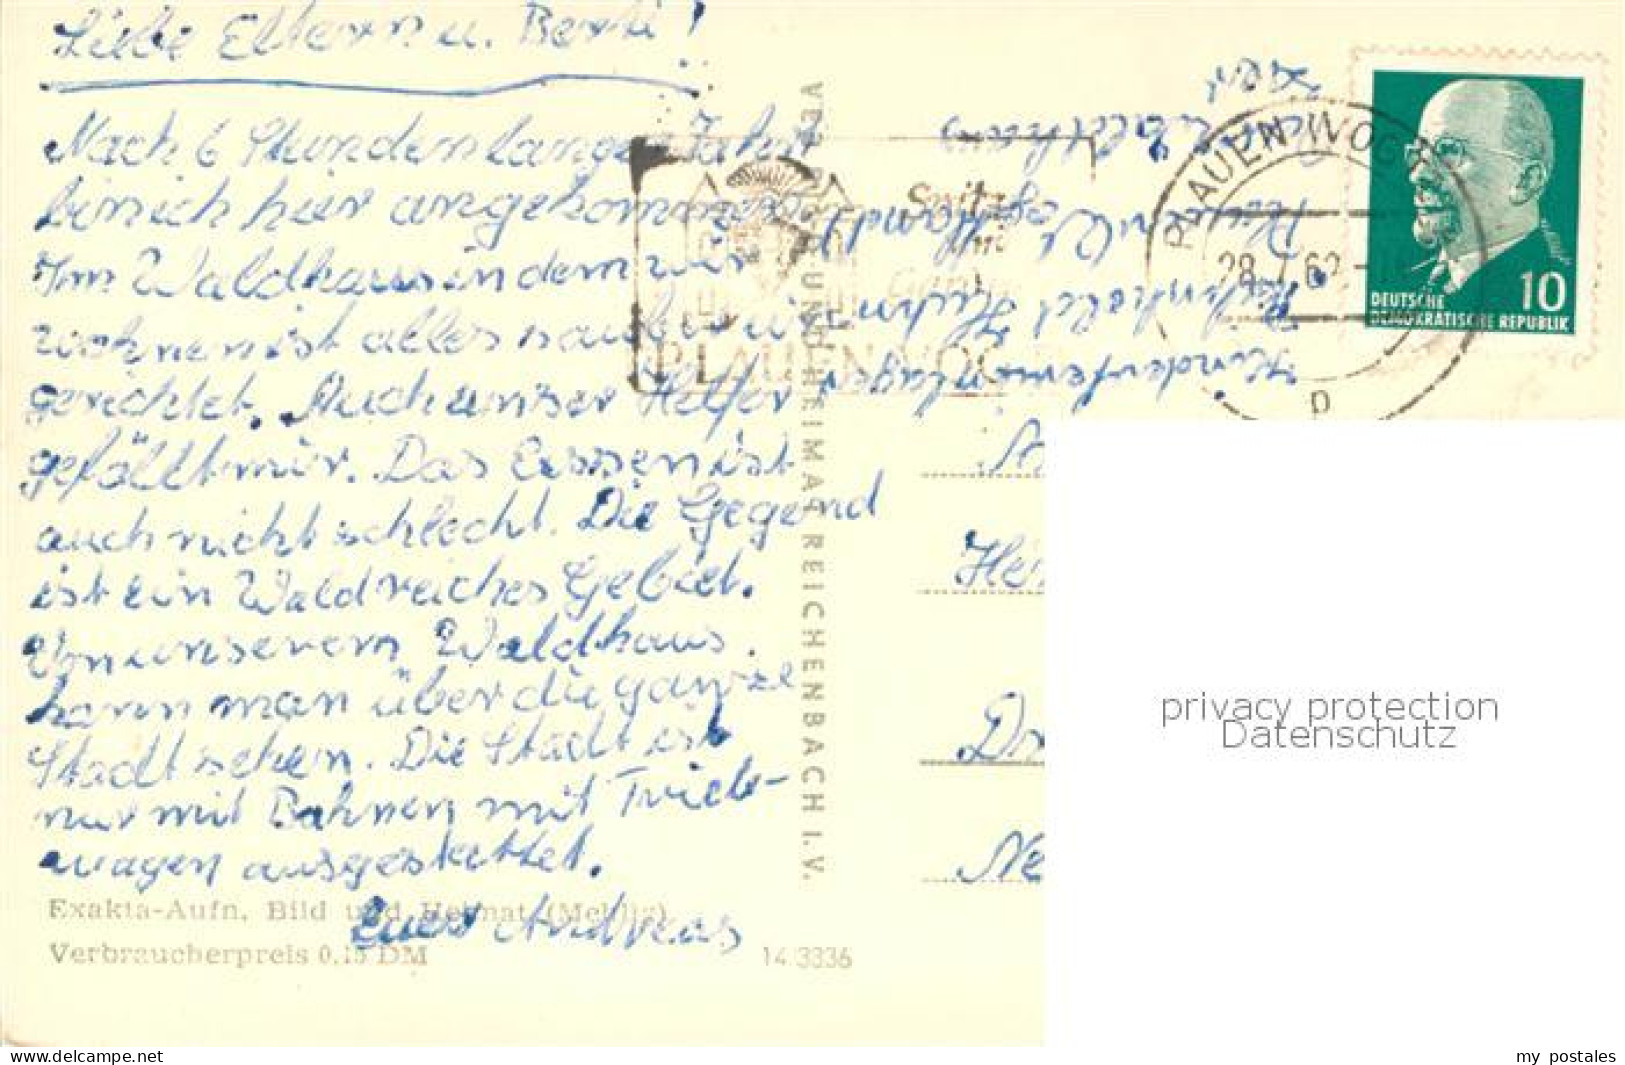 Liebe Eltern u. Berti!
Nach 6 Stundenlanger Fahrt
bin ich hier angekommen.
Im Waldhaus in dem wir
wohnen ist alles sauber
gerichtet. Auch unser Helfer
gefällt mir. Das Essen ist
auch nicht schlecht. Die Gegend
ist ein Waldreiches Gebiet.
Von unserem Waldhaus
kann man über die ganze
Stadt sehen. Die Stadt ist
nur mit Bahnen mit Trieb-
wagen ausgestattet.
Euer Andreas
Exakta-Aufn. Bild und Heimat
Verbraucherpreis 0,15 DM
14 3336
VERLAG BILD UND HEIMAT REICHENBACH I. V.
Kinderferienlager
Plauen i. Vogtland
Waldhaus
Spitzen
PLAUEN VOGTL
PLAUEN (VOGTL
28.7.62
p
10
DEUTSCHE
DEMOKRATISCHE REPUBLIK
privacy protection
Datenschutz
my postales
www.delcampe.net